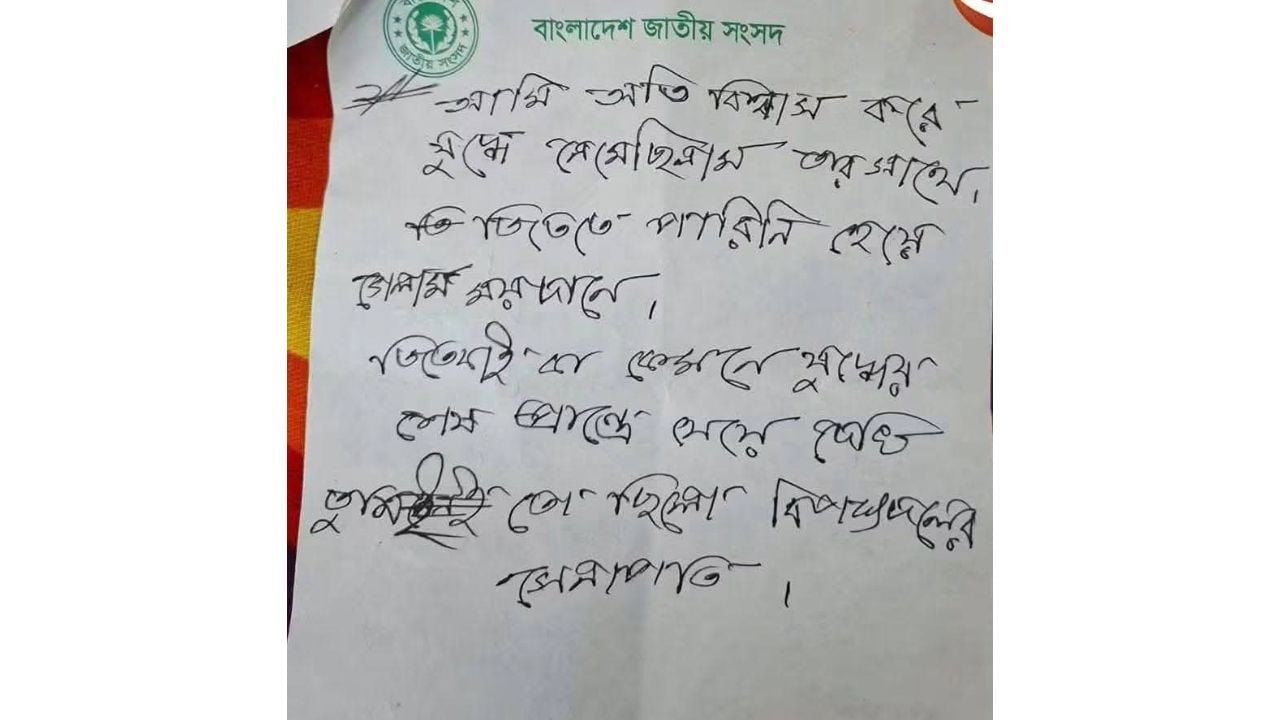 বাংলাদেশ জাতীয় সংসদ
জাতীয় সংসদ
আমি অতি বিশ্বাস করে
যুদ্ধে নেমেছিলাম তার সাথে।
জিততে পারিনি হেরে
গেলাম ময়দানে।
জিতবোই বা কেমনে যুদ্ধের
শেষ প্রান্তে যেয়ে দেখি
তুমিই তো ছিলো বিপক্ষদলের
সেনাপতি।